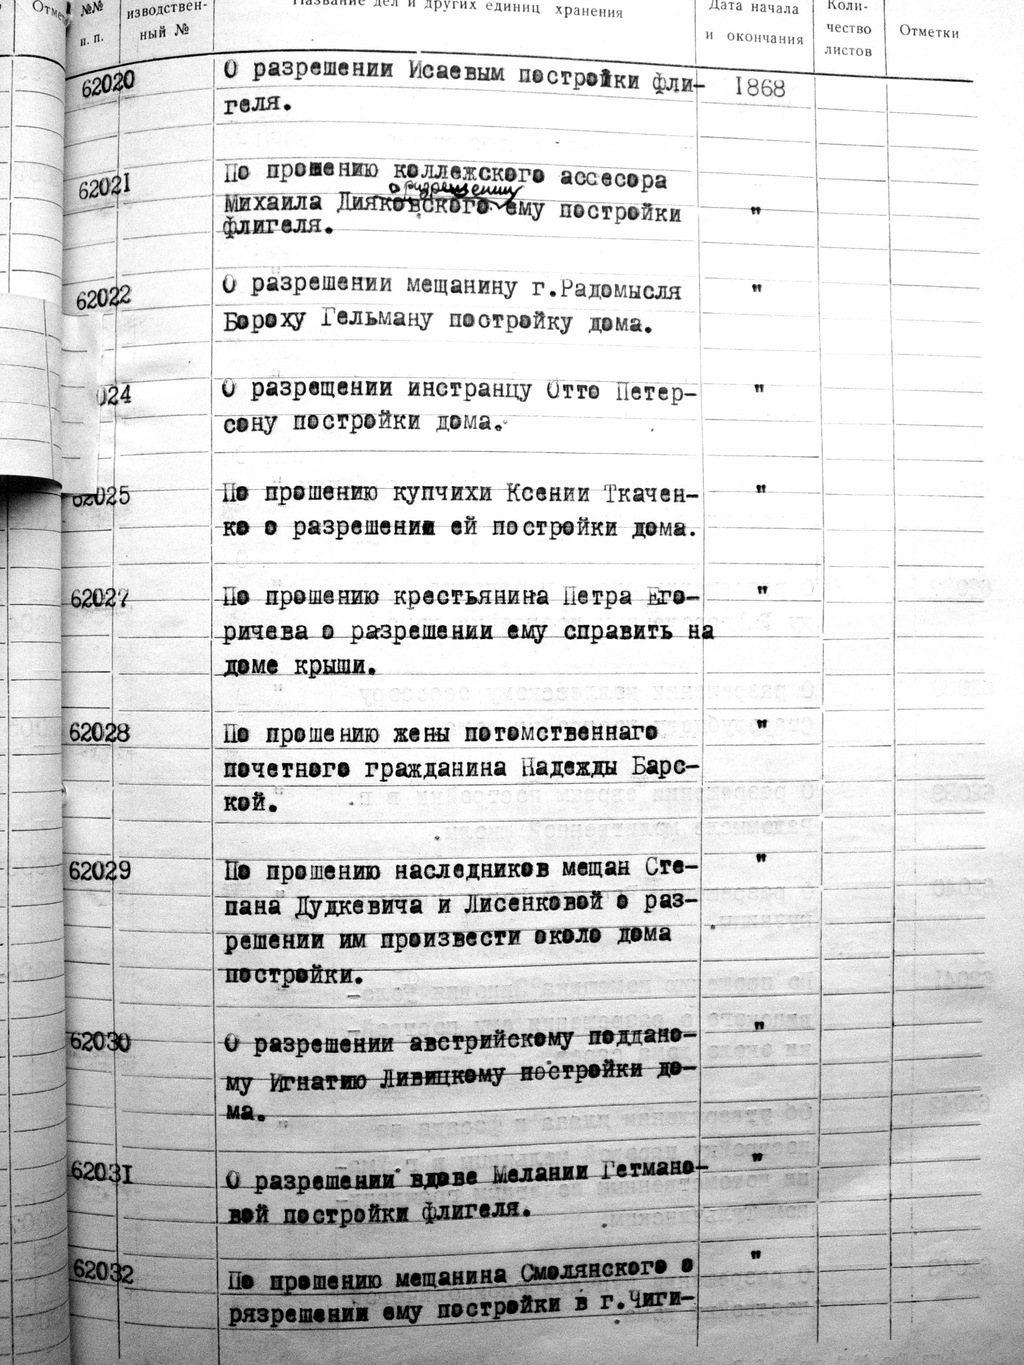 Отмет №№ изводствен- Название дел и других единиц хранения Дата начала Коли-
п. п. ный № и окончания чество Отметки
листов
62020 О разрешении Исаевым постройки фли- 1868
геля.
62021 По прошению коллежского ассесора
о разрешении
Михаила Дияковского ему постройки "
флигеля.
62022 О разрешении мещанину г.Радомысля "
Бороху Гельману постройку дома.
024 О разрещении инстранцу Отто Петер- "
сону постройки дома.
62025 По прошению купчихи Ксении Ткачен- "
ко о разрешении ей постройки дома.
62027 По прошению крестьянина Петра Его- "
ричева о разрешении ему справить на
доме крыши.
62028 По прошению жены потомственнаго "
почетного гражданина Надежды Барс-
кой.
62029 По прошению наследников мещан Сте- "
пана Дудкевича и Лисенковой о раз-
решении им произвести около дома
постройки.
62030 О разрешении австрийскому поддано- "
му Игнатию Ливицкому постройки до-
ма.
62031 О разрешении вдове Мелании Гетмано- "
вой постройки флигеля.
62032 По прошению мещанина Смолянского о "
рязрешении ему постройки в г.Чиги-